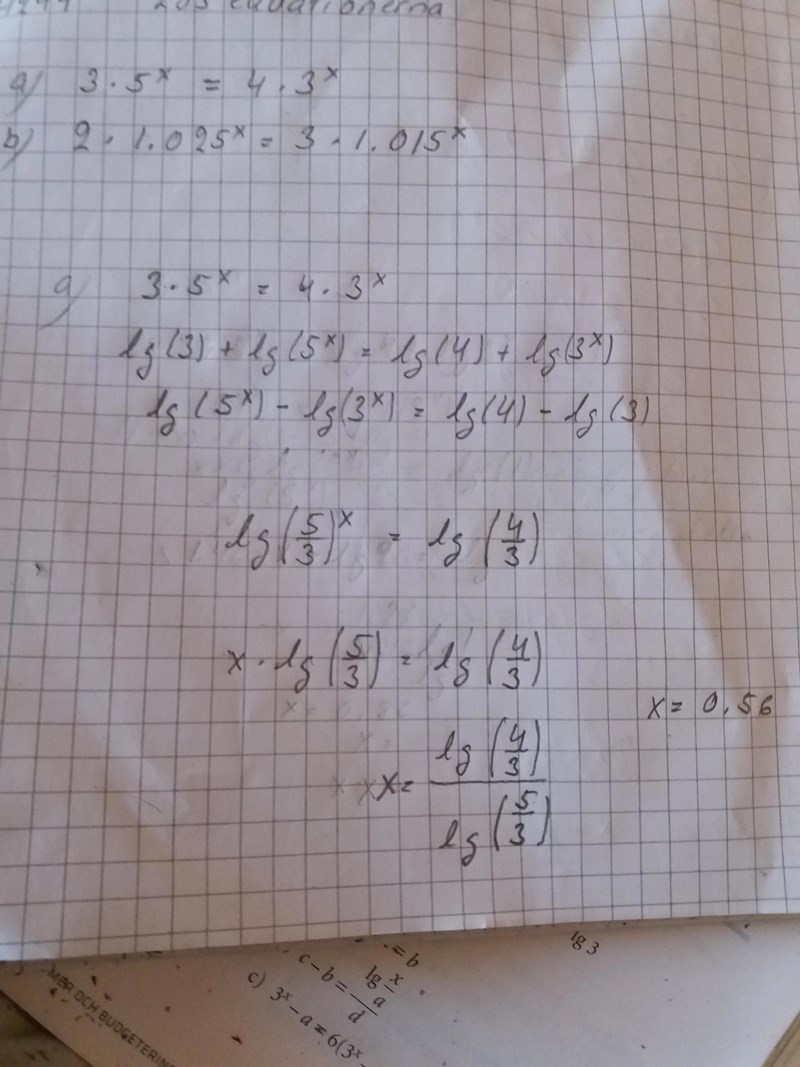 ekvationerna
a) 3 · 5ˣ = 4 · 3ˣ
b) 2 · 1.025ˣ = 3 · 1.015ˣ
a) 3 · 5ˣ = 4 · 3ˣ
lg(3) + lg(5ˣ) = lg(4) + lg(3ˣ)
lg(5ˣ) - lg(3ˣ) = lg(4) - lg(3)
lg(5/3)ˣ = lg(4/3)
x · lg(5/3) = lg(4/3)
x = 0.56
x = lg(4/3) / lg(5/3)
lg 3
= b
c - b = lg x/a / d
c) 3ˣ - a = 6(3ˣ
OCH BUDGETERIN